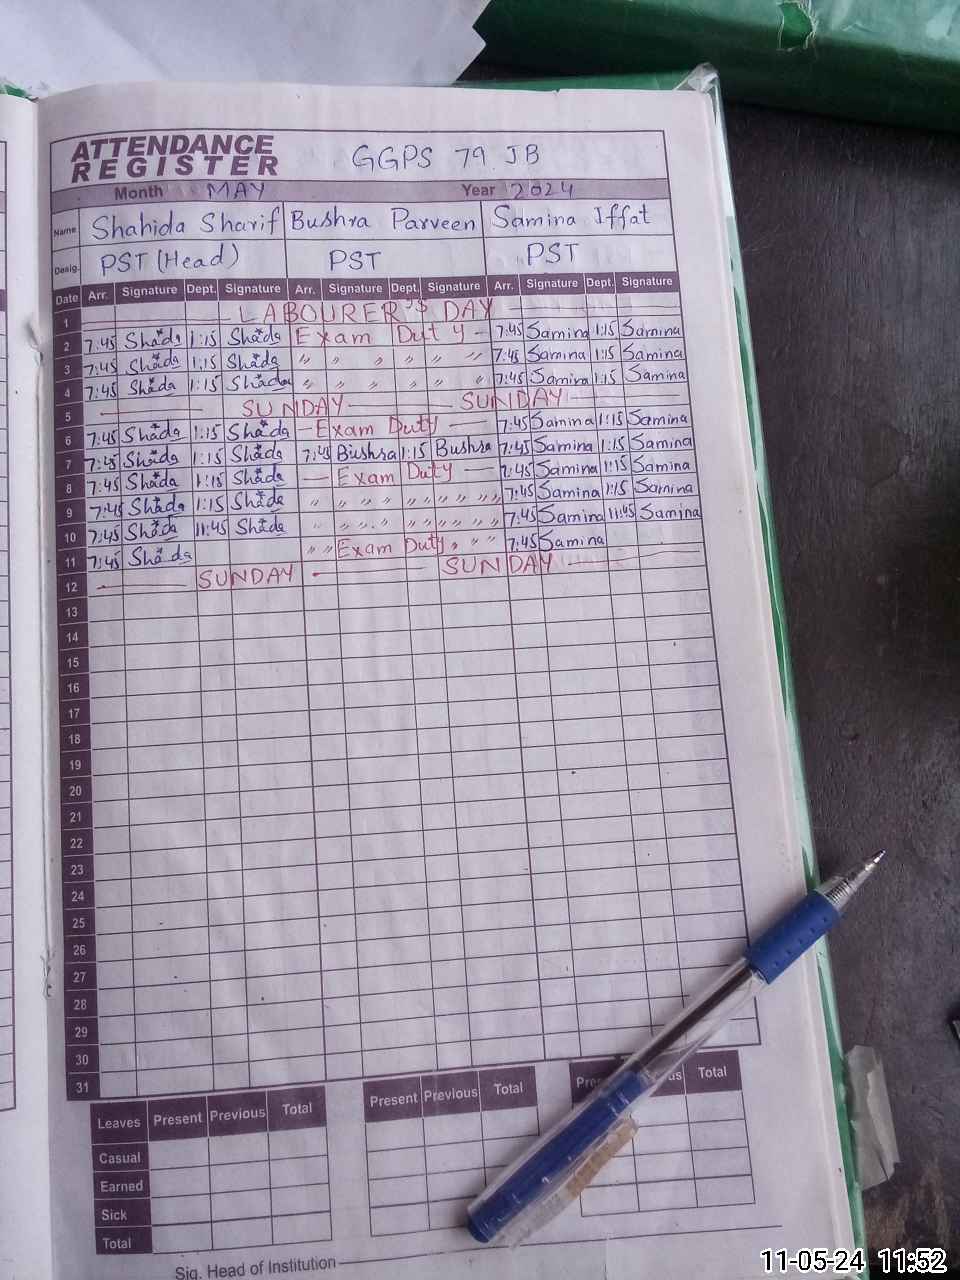 ATTENDANCE REGISTER GGPS 79 JB
Month MAY Year 2024
Name Shahida Sharif Bushra Parveen Samina Iffat
Desig. PST (Head) PST PST
Date Arr. Signature Dept. Signature Arr. Signature Dept. Signature Arr. Signature Dept. Signature
1 LABOURER'S DAY
2 7:45 Shada 1:15 Shada Exam Duty 7:45 Samina 1:15 Samina
3 7:45 Shada 1:15 Shada " " " " " " 7:45 Samina 1:15 Samina
4 7:45 Shada 1:15 Shada " " " " " " 7:45 Samina 1:15 Samina
5 SUNDAY SUNDAY
6 7:45 Shada 1:15 Shada Exam Duty 7:45 Samina 1:15 Samina
7 7:45 Shada 1:15 Shada 7:45 Bushra 1:15 Bushra 7:45 Samina 1:15 Samina
8 7:45 Shada 1:15 Shada Exam Duty 7:45 Samina 1:15 Samina
9 7:45 Shada 1:15 Shada " " " " " " " " " 7:45 Samina 1:15 Samina
10 7:45 Shada 11:45 Shada " " " " " " " " " 7:45 Samina 11:45 Samina
11 7:45 Shada " " Exam Duty " " " 7:45 Samina
12 SUNDAY SUNDAY
13
14
15
16
17
18
19
20
21
22
23
24
25
26
27
28
29
30
31
Leaves Present Previous Total Present Previous Total Total
Casual
Earned
Sick
Total
Sig. Head of Institution
11-05-24 11:52